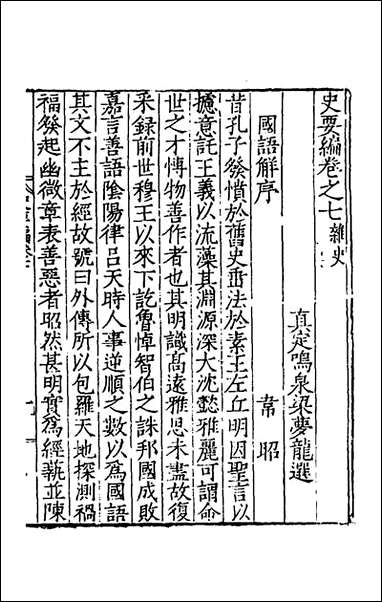 史要編卷之七 雜史
真定鳴泉梁夢龍選
國語解序 韋昭
昔孔子發憤於舊史垂法於素王左丘明因聖言以
攄意託王義以流藻其淵源深大沈懿雅麗可謂命
世之才博物善作者也其明識高遠雅思未盡故復
采録前世穆王以來下訖魯悼智伯之誅邦國成敗
嘉言善語陰陽律吕天時人事逆順之數以爲國語
其文不主於經故號曰外傳所以包羅天地探測禍
福發起幽微章表善惡者昭然甚明實爲經蓺並陳